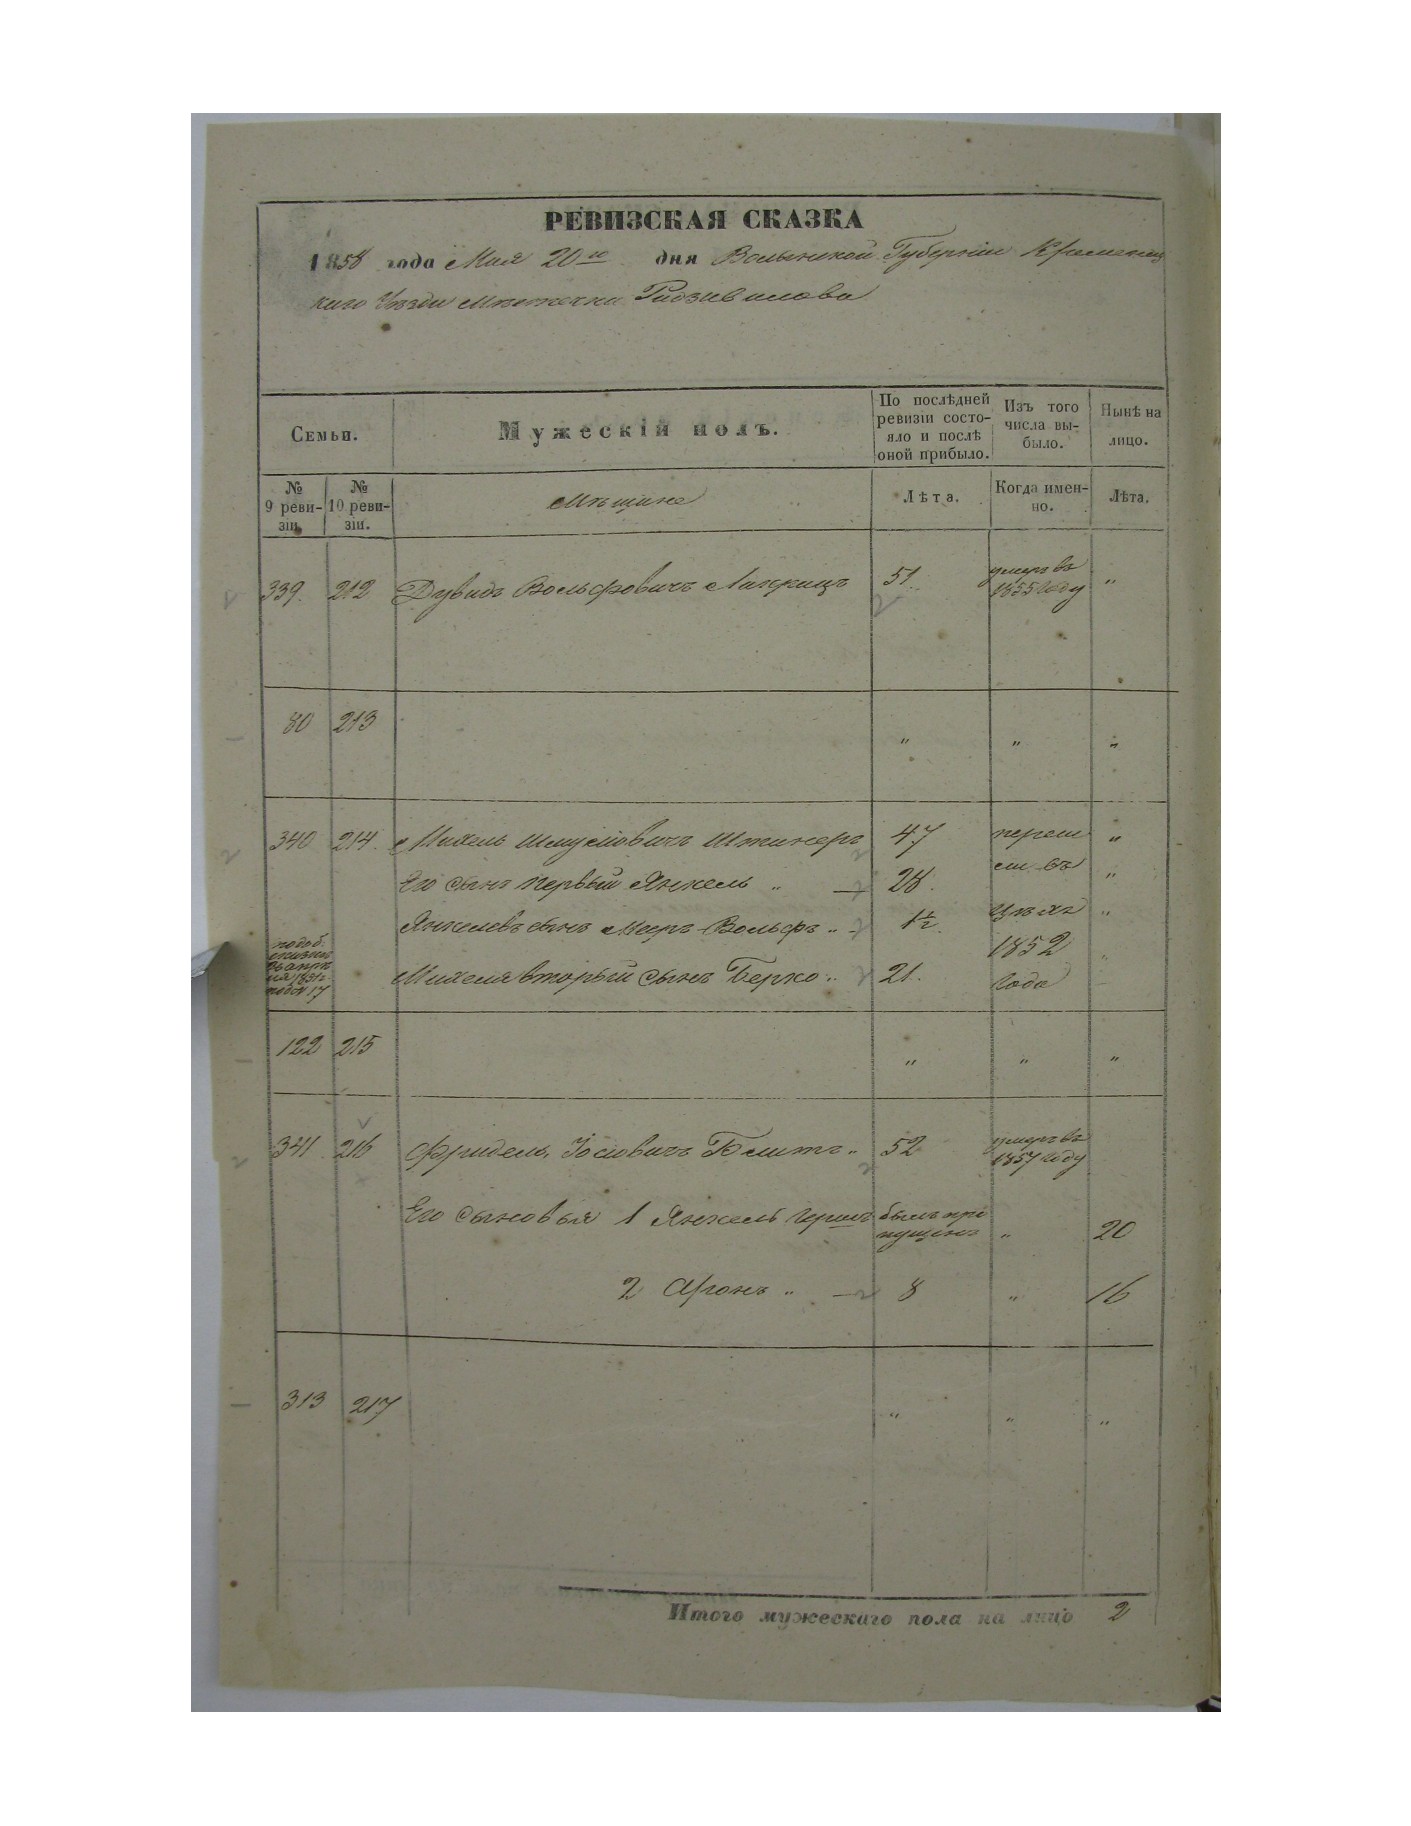 РЕВИЗСКАЯ СКАЗКА
1858 года Мая 20го дня Волынской Губернии Кременец
каго Уезда Местечка Радзивилова
Семьи.
Мужескій полъ.
По послѣдней ревизіи состо-
яло и послѣ
оной прибыло.
Изъ того
числа вы-
было.
Нынѣ на
лицо.
№
9 реви-
зіи.
№
10 реви-
зіи.
Мѣщане
Лѣта.
Когда имен-
но.
Лѣта.
339. 212 Дувидъ Вольфовичъ 51. умеръ въ 1855 году „
80 213 „ „ „
340 214. Михель Шмулёвичъ 47 переш „
Его сынъ первый Янкель „ — 28. ли въ „
Янкелевъ сынъ Меер-Вольфъ „ 1½ 1852 „
Михеля вторый сынъ Берко „ 21. года
122 215 „ „ „
341 216 Фридель Іосіовичъ „ 52 умеръ въ 1857 году
Его сыновья 1 Янкель Гершъ былъ про
пущенъ „ 20
2 Аронъ „ — 8 „ 16
313 217 „ „ „
Итого мужескаго пола на лицо 2